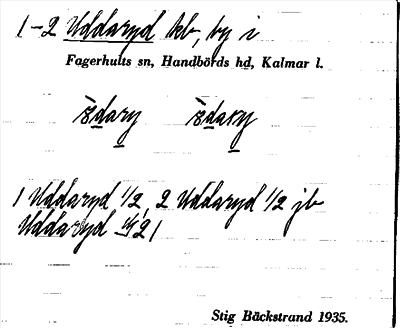 1-2 Uddaryd kb, by i
Fagerhults sn, Handbörds hd, Kalmar l.
1 Uddaryd 1/2, 2 Uddaryd 1/2 jb
Uddaryd 21
Stig Bäckstrand 1935.